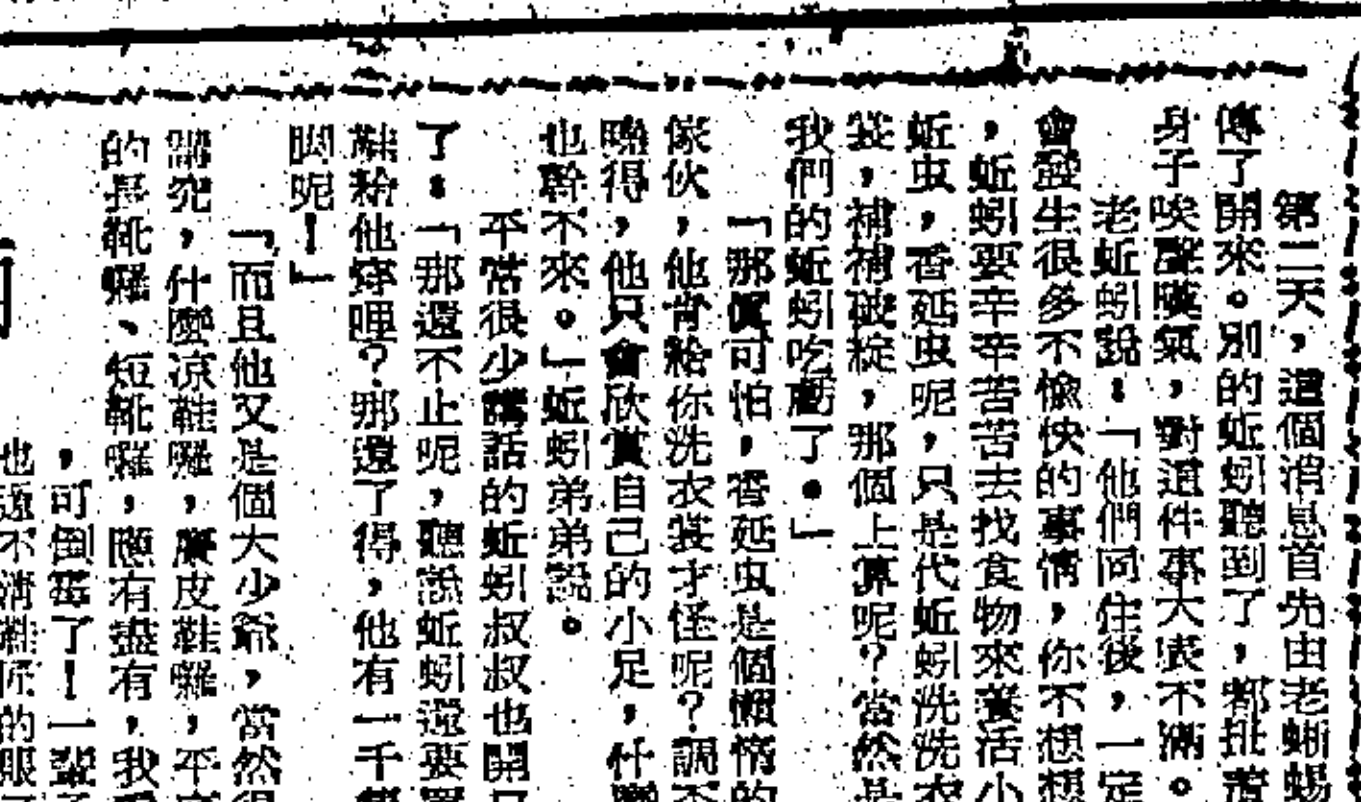 第二天，這個消息首先由老蜥蜴
傳了開來。別的蚯蚓聽到了，都扭着
身子唉聲嘆氣，對這件事大表不滿。
老蚯蚓說：「他們同住後，一定
會發生很多不愉快的事情，你不想想
，蚯蚓要辛辛苦苦去找食物來養活小
蚯虫，香延虫呢，只是代蚯蚓洗洗衣
裳，補補破綻，那個上算呢？當然是
我們的蚯蚓吃虧了。」
「那眞可怕，香延虫是個懶惰的
傢伙，他肯給你洗衣裳才怪呢？調不
曉得，他只會欣賞自己的小足，什麼
也幹不來。」蚯蚓弟弟說。
平常很少講話的蚯蚓叔叔也開口
了：「那還不止呢，聽說蚯蚓還要買
鞋給他穿哩？那還了得，他有一千
脚呢！」
「而且他又是個大少爺，當然得
講究，什麼凉鞋囉，膠皮鞋囉，平
的長靴囉、短靴囉，應有盡有，我
，可倒霉了！一輩子
也還不清鞋匠的眼